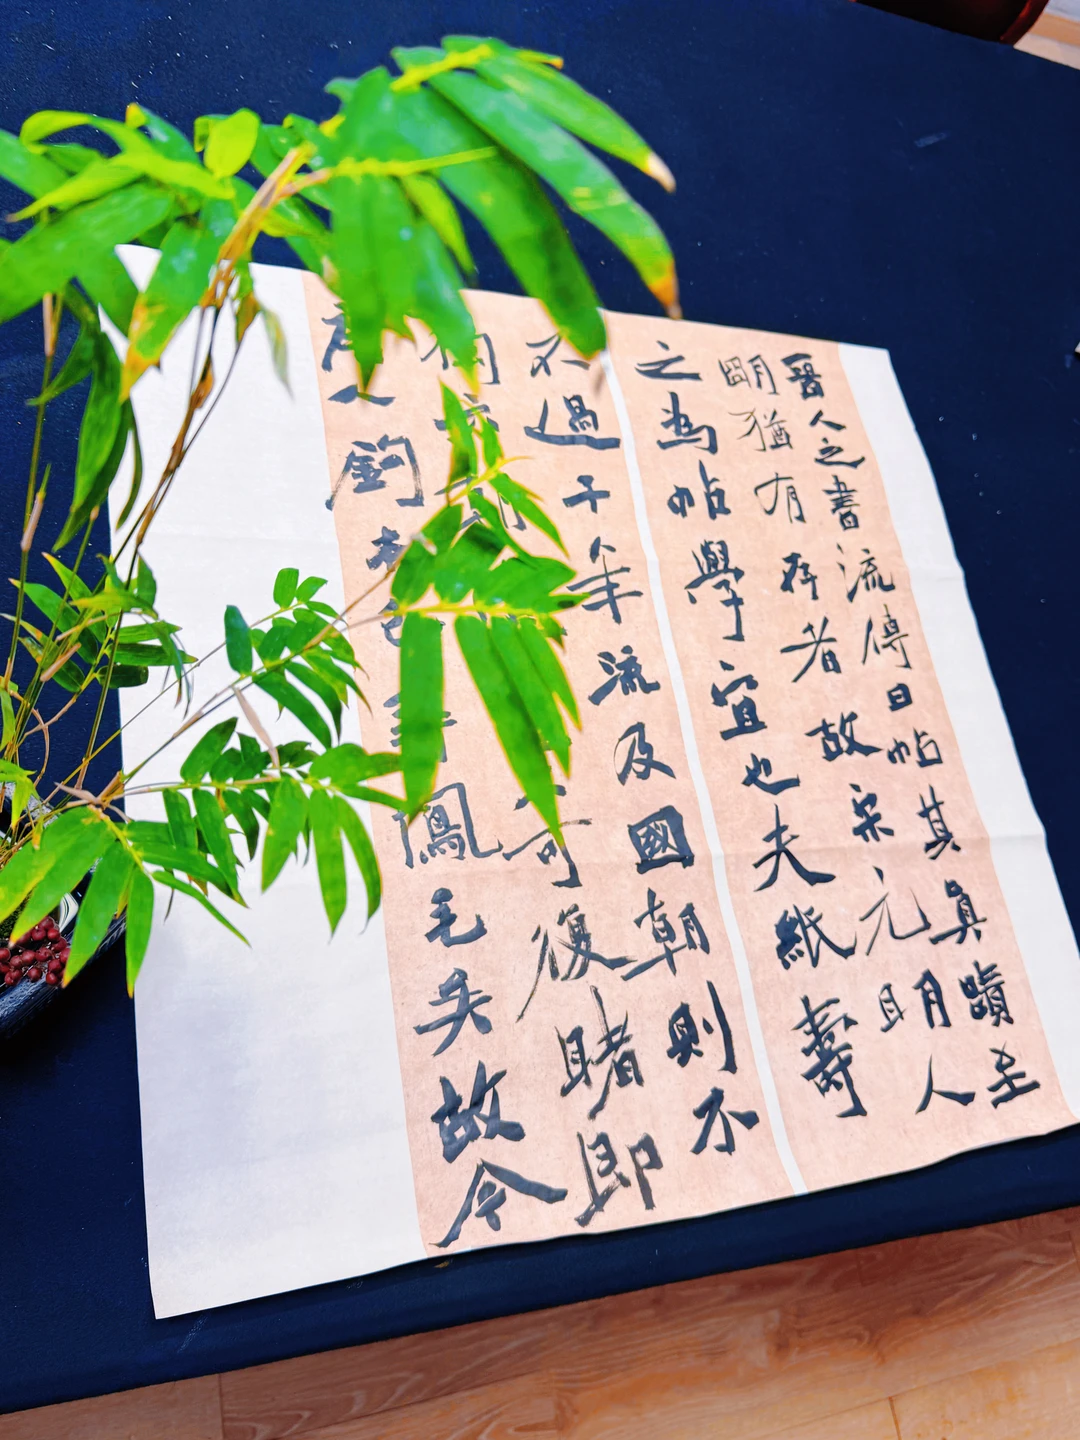 晉人之書流傳曰帖其真蹟至
明猶有存者故宋元明人
之為帖學宜也夫紙壽
不過千年流及國朝則不
可復睹即
人鈎鳳毛矣故今